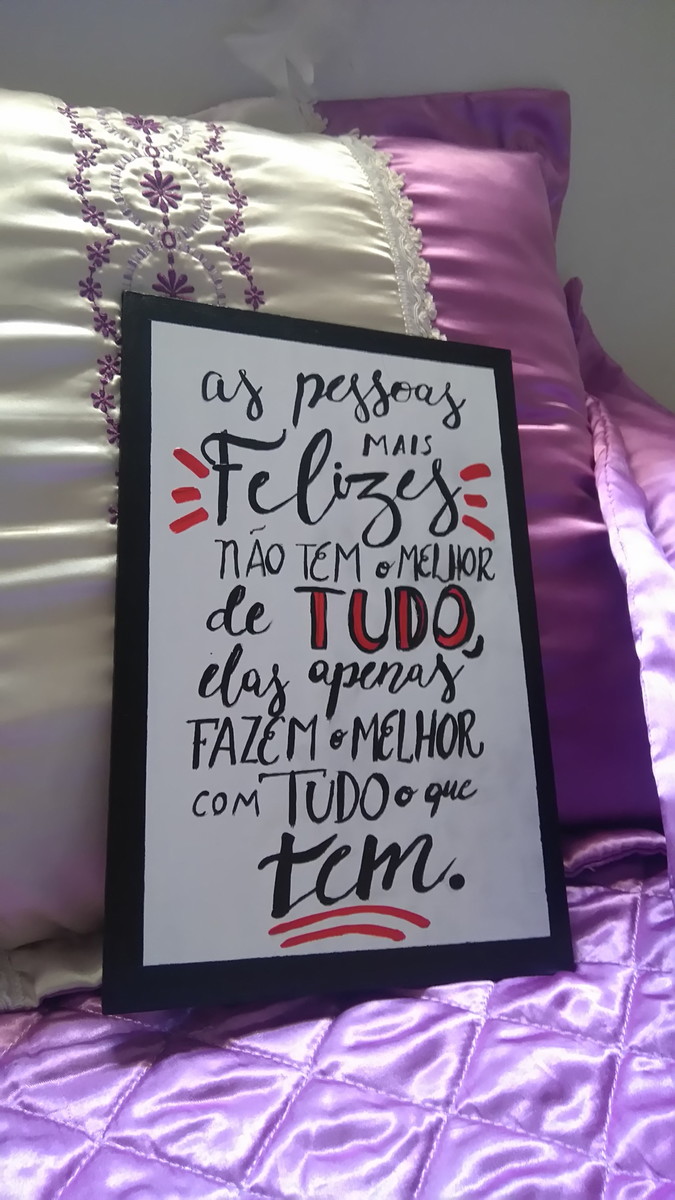 as pessoas
MAIS
Felizes
NÃO TEM o MELHOR
de TUDO,
elas apenas
FAZEM o MELHOR
COM TUDO o que
tem.